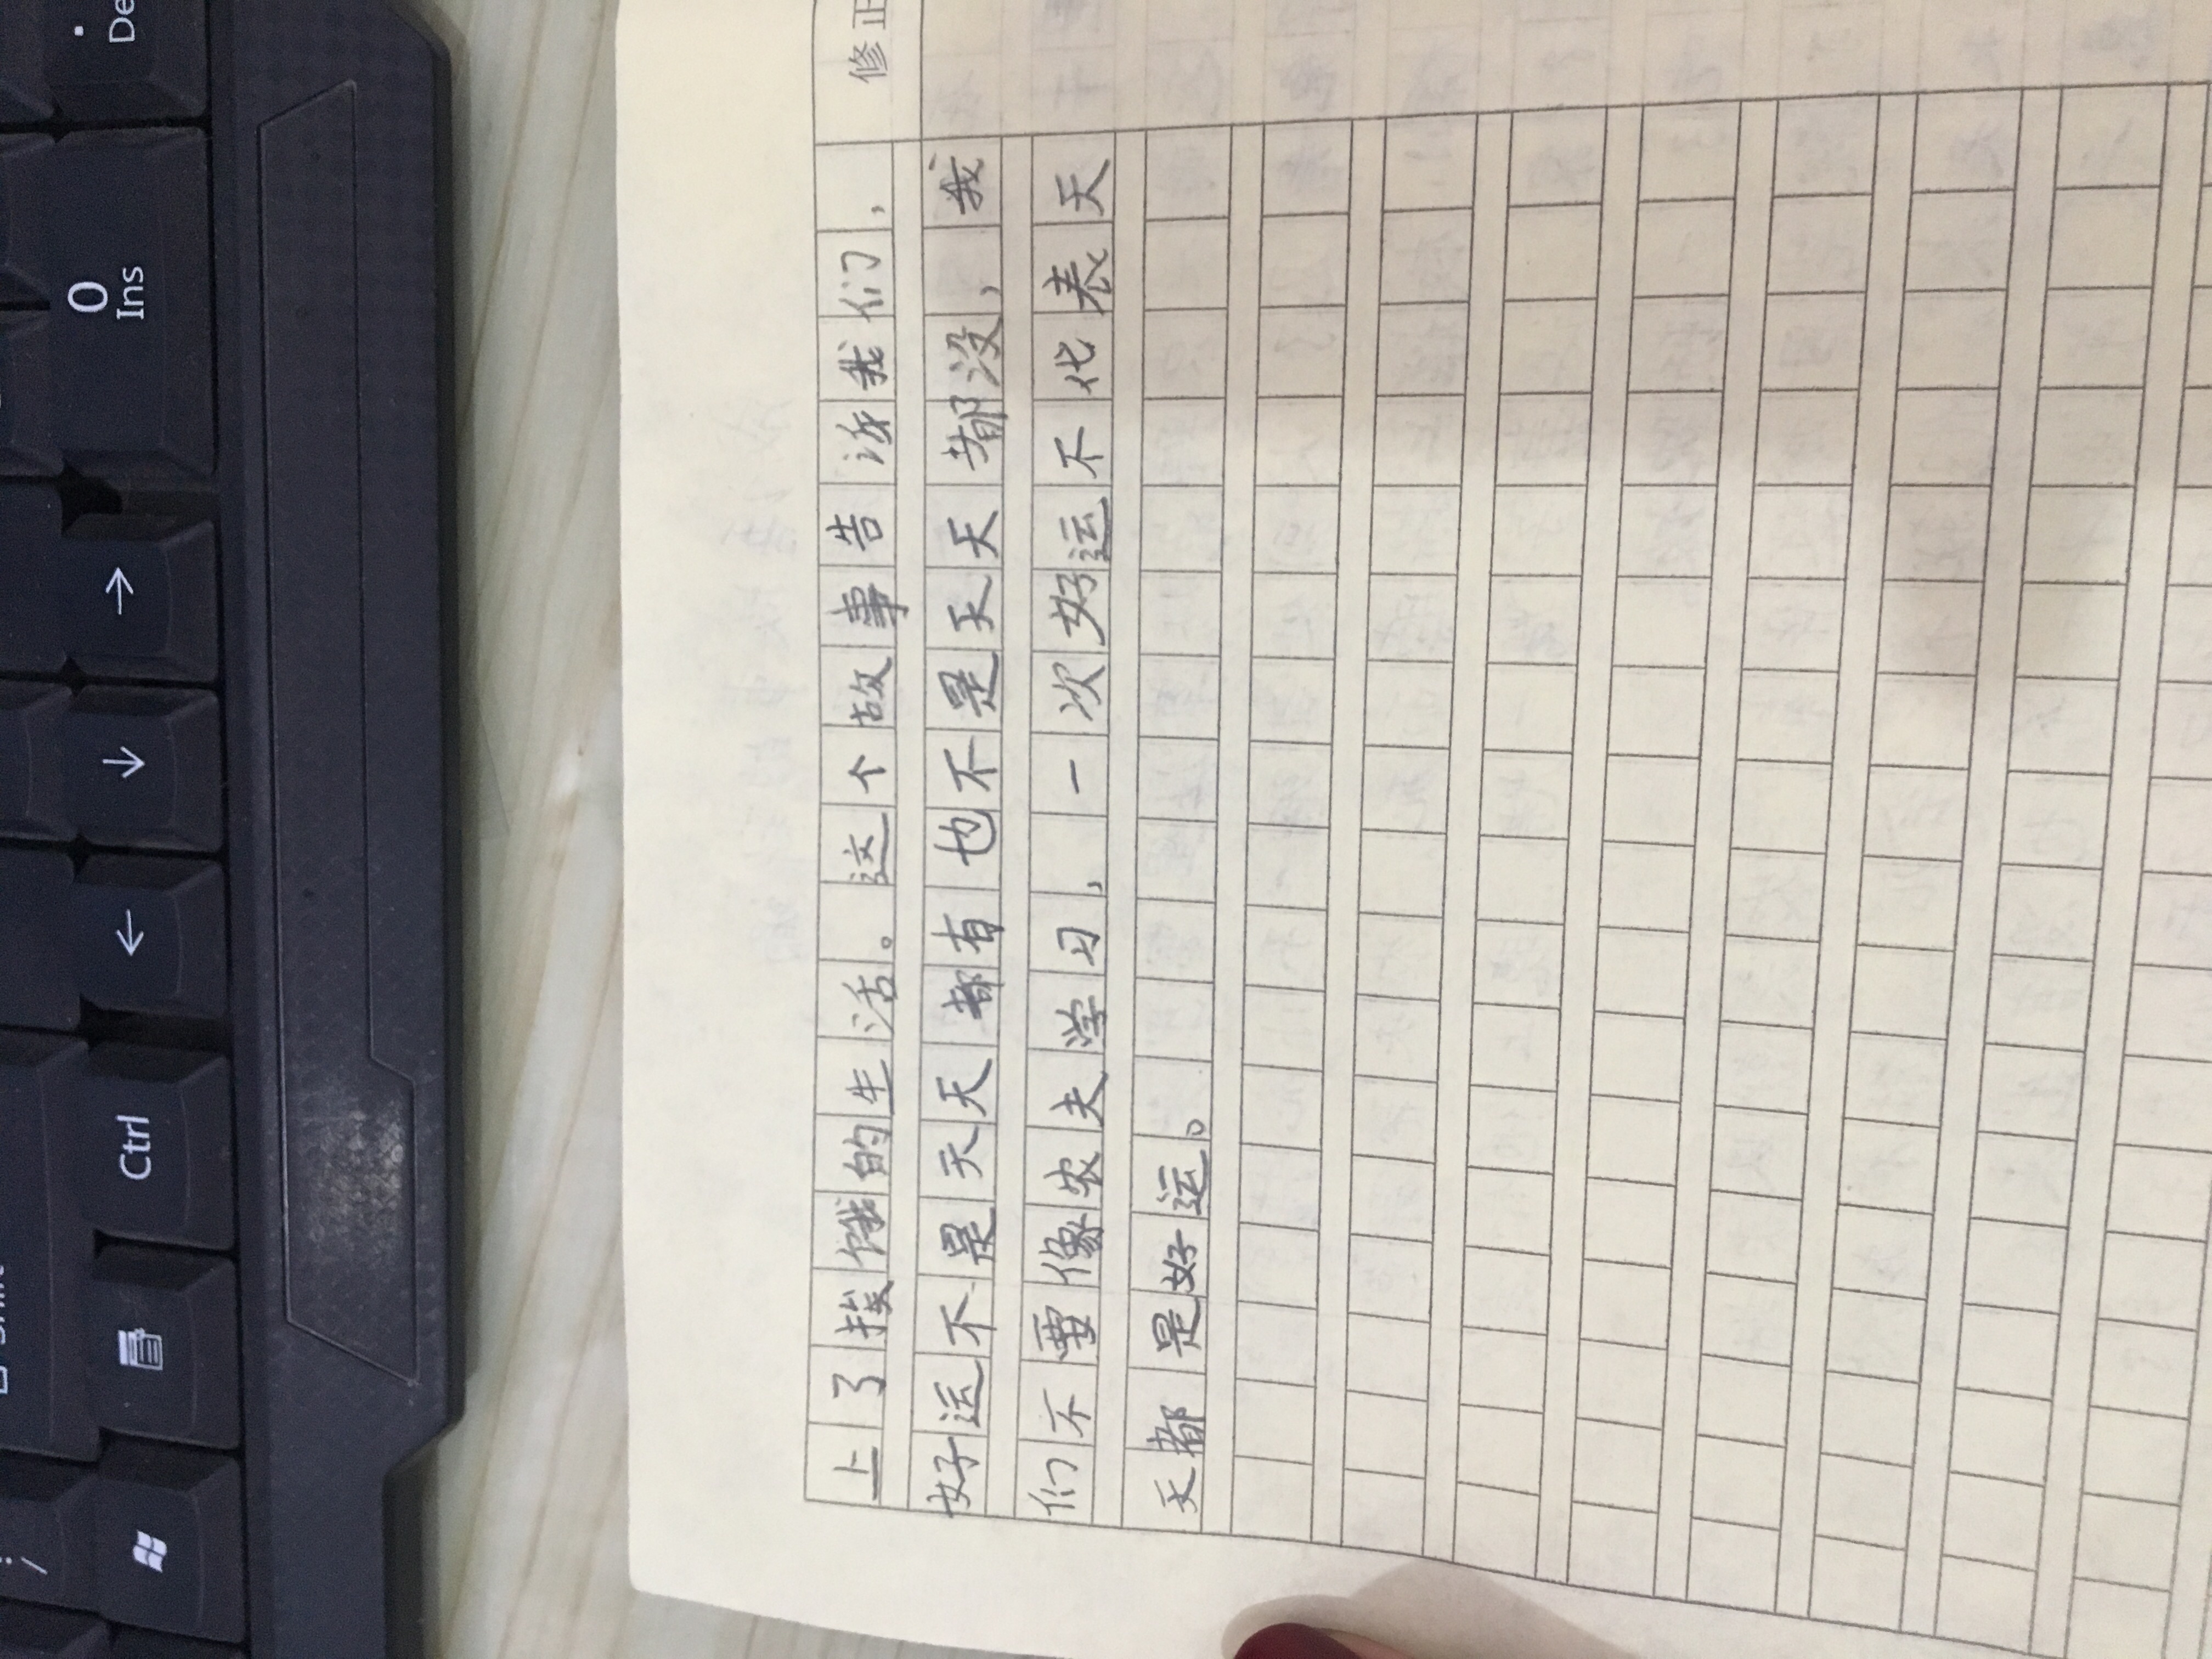 修正
上了挨饿的生活。这个故事告诉我们,
好运不是天天都有也不是天天都没,我
们不要像农夫学习,一次好运不代表天
天都是好运。
0
Ins
.
De
→
↓
←
Ctrl
/